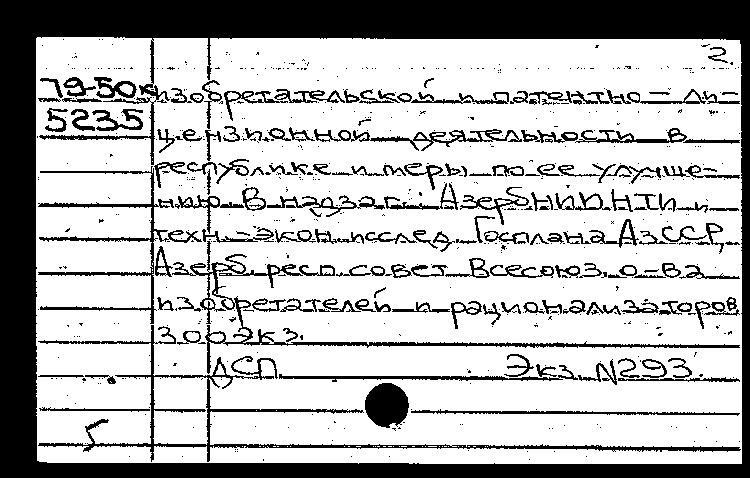 2.
79-50к изобретательской и патентно – ли-
5235 цензионной деятельности в
республике и меры по ее улучше-
нию. В надзаг.: АзербНИИНТИ и
техн.-экон. исслед. Госплана АзССР,
Азерб. респ. совет Всесоюз. о-ва
изобретателей и рационализаторов
300 экз.
ДСП. Экз. N293.
5